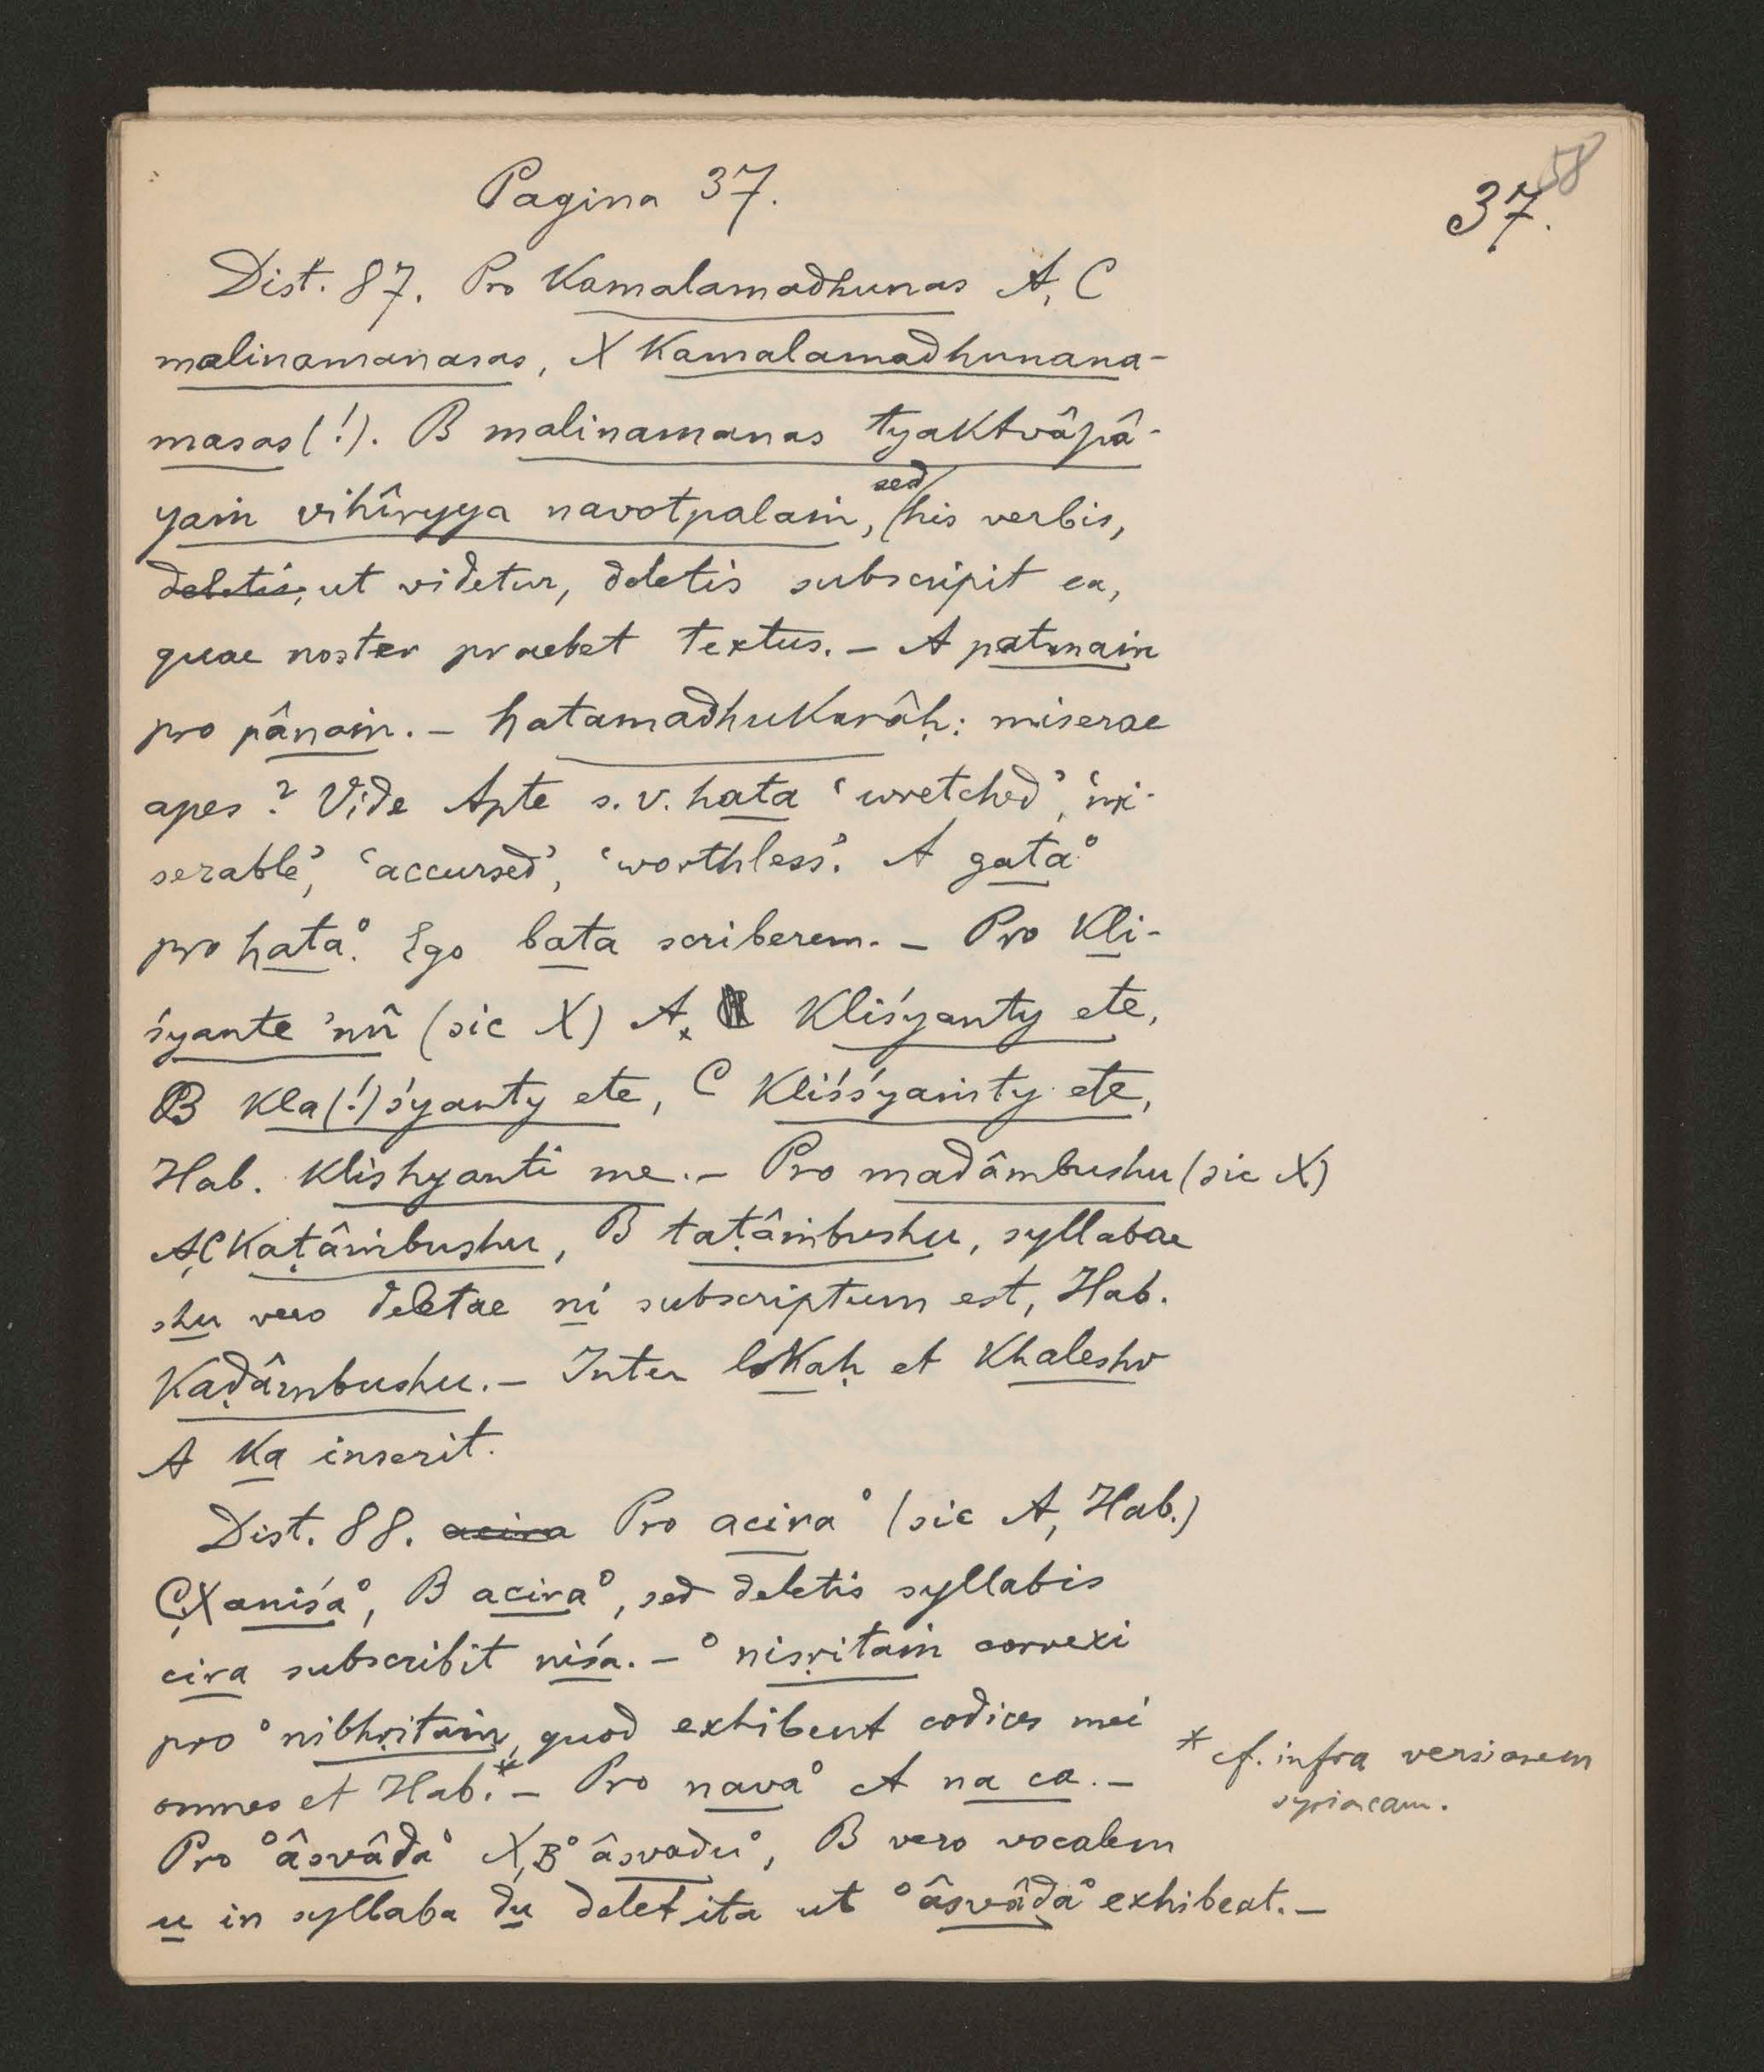 58
37.
Pagina 37.
Dist. 87. Pro Kamalamadhunas A, C
malinamanasas, X Kamalamadhunana-
masas (!). B malinamanas tyaktvâpâ-
yaṁ vihîryya navotpalaṁ, sed his verbis,
deletis, ut videtur, deletis subscripit ea,
quae noster praebet textus. – A patnaṁ
pro pânaṁ. – hatamadhukarâḥ: miserae
apes? Vide Apte s. v. hata ‘wretched’, ‘mi-
serable’, ‘accursed’, ‘worthless’. A gata°
pro hata°. Ego bata scriberem. – Pro Kli-
śyante 'mû (sic X) A, Kliśyanty ete,
B Kla(!)śyanty ete, C Kliśśyaṁty ete,
Hab. Klishyanti me. – Pro madâmbushu (sic X)
A, C Kaṭâṁbushu, B taṭâṁbushu, syllabae
shu vero deletae ni subscriptum est, Hab.
Kaḍâmbushu. – Inter lokaḥ et Khaleshv
A Ka inserit.
Dist. 88. acira Pro acira° (sic A, Hab.)
C, X aniśa°, B acira°, sed deletis syllabis
cira subscribit niśa. – °nisṛitaṁ correxi
pro °nibhṛitaṁ, quod exhibent codices mei
omnes et Hab.* – Pro nava° A na ca. –
* cf. infra versionem
syriacam.
Pro °âsvâda° X, B °âsvadu°, B vero vocalem
u in syllaba du delet ita ut °âsvâda° exhibeat. –